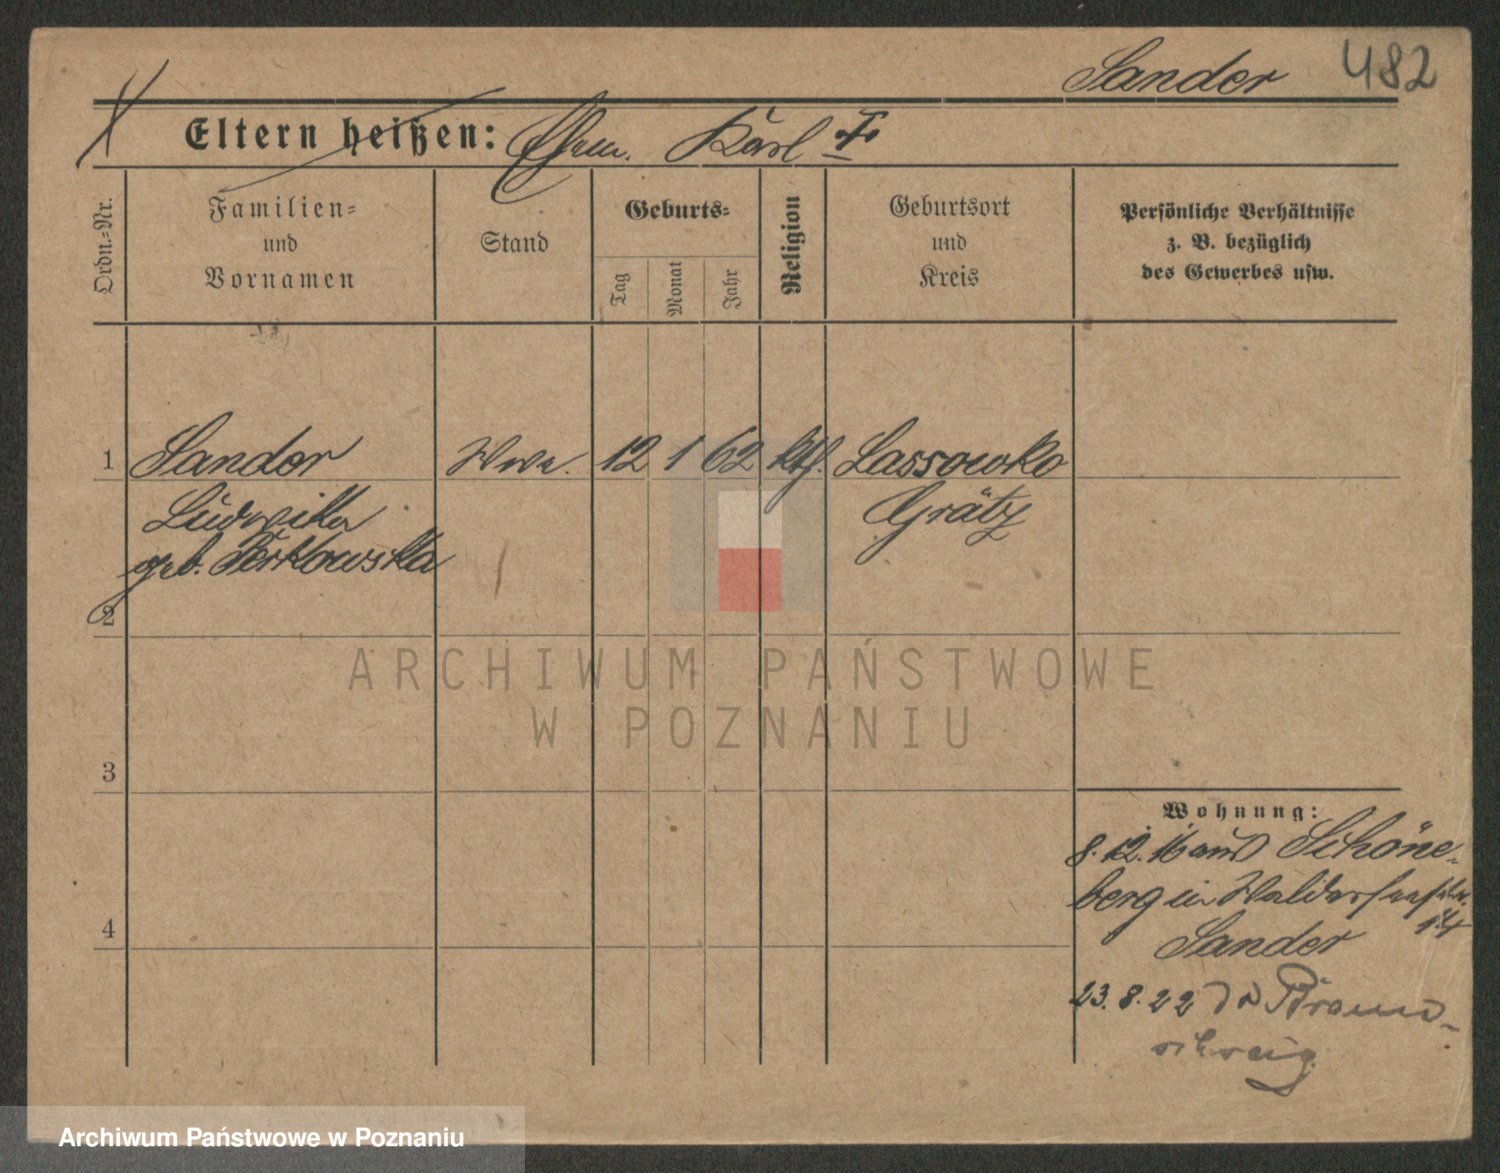 Sander 482
Eltern heißen: Ehem. Karl †
Ordn.-Nr.
Familien-
und
Vornamen
Stand
Geburts-
Tag
Monat
Jahr
Religion
Geburtsort
und
Kreis
Persönliche Verhältnisse
z. B. bezüglich
des Gewerbes usw.
1 Sander Wwe. 12 1 62 kth. Lassowko
Ludwika Grätz
geb. Perkowska
2
ARCHIWUM PAŃSTWOWE
W POZNANIU
3
4
Wohnung:
8.12.16 aus Schöne-
berg in Waldersee str.
14
Sander
23.8.22 Braun-
schweig
Archiwum Państwowe w Poznaniu